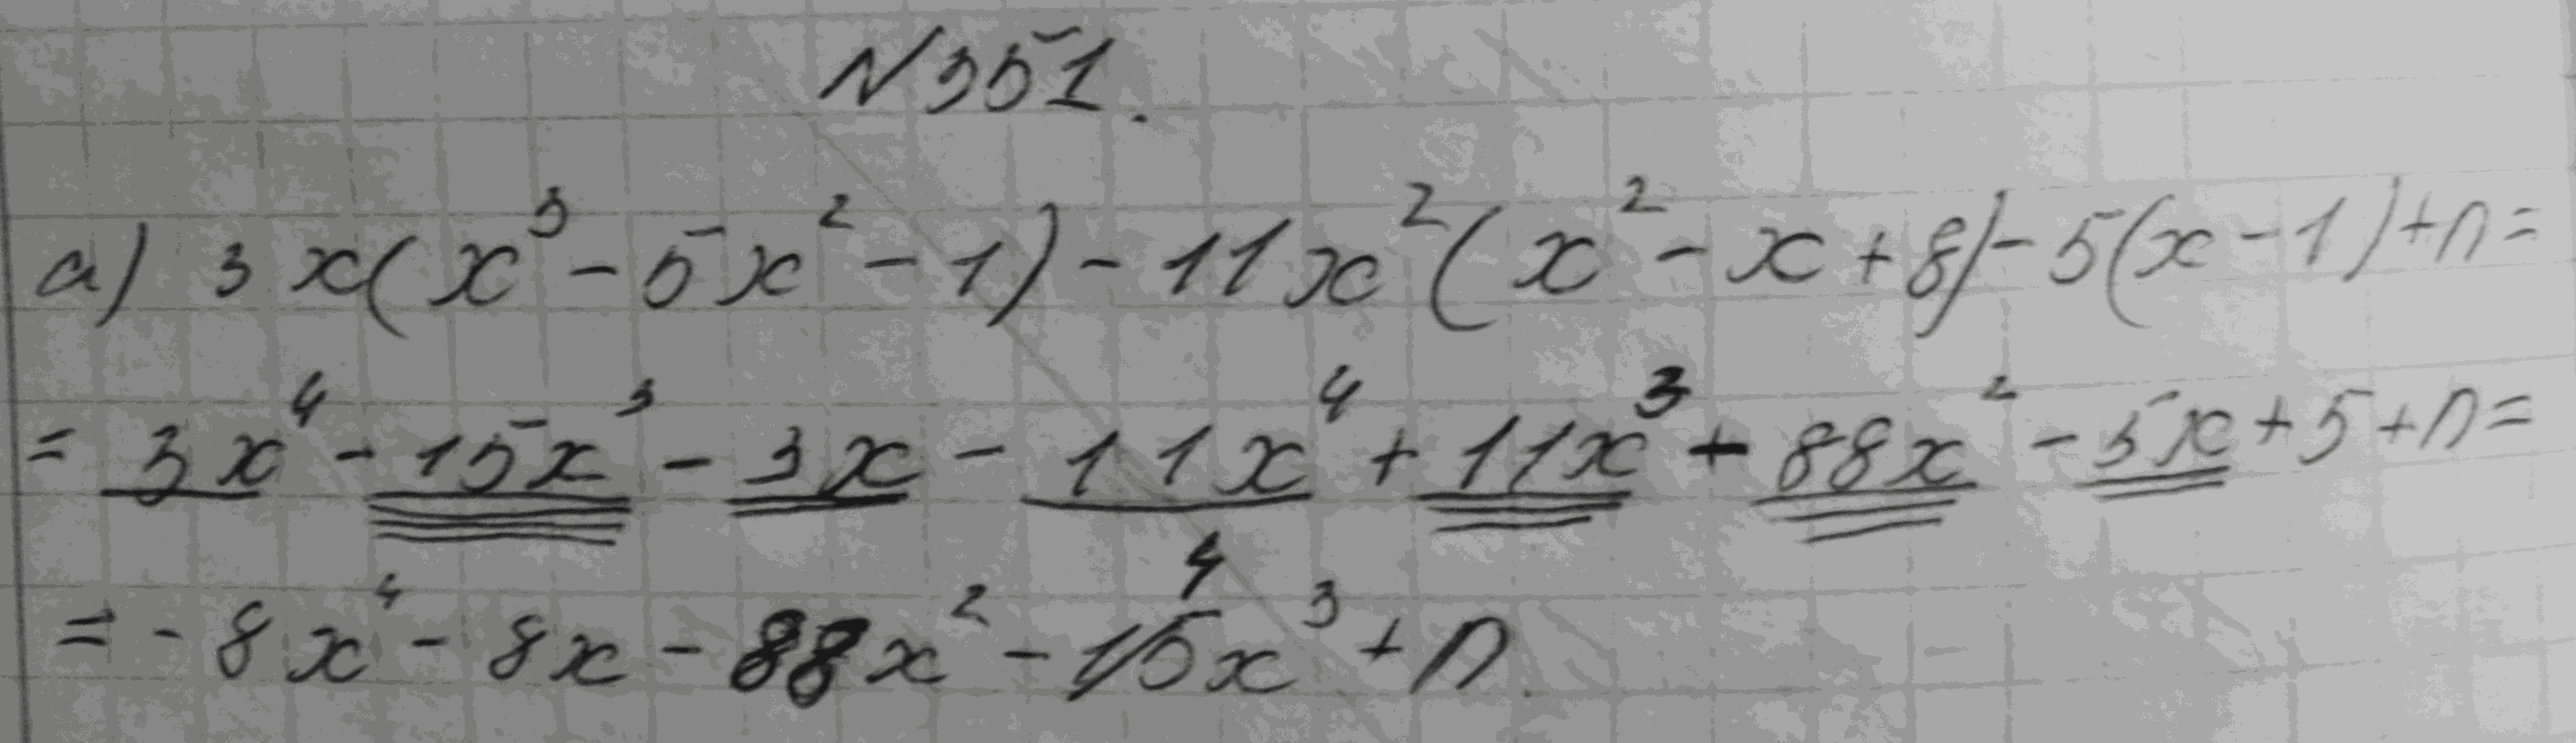 N351.
а) 3x(x³ - 5x² - 1) - 11x²(x² - x + 8) - 5(x - 1) + n =
= 3x⁴ - 15x³ - 3x - 11x⁴ + 11x³ + 88x² - 5x + 5 + n =
4
= - 8x⁴ - 8x - 88x² - 15x³ + n.